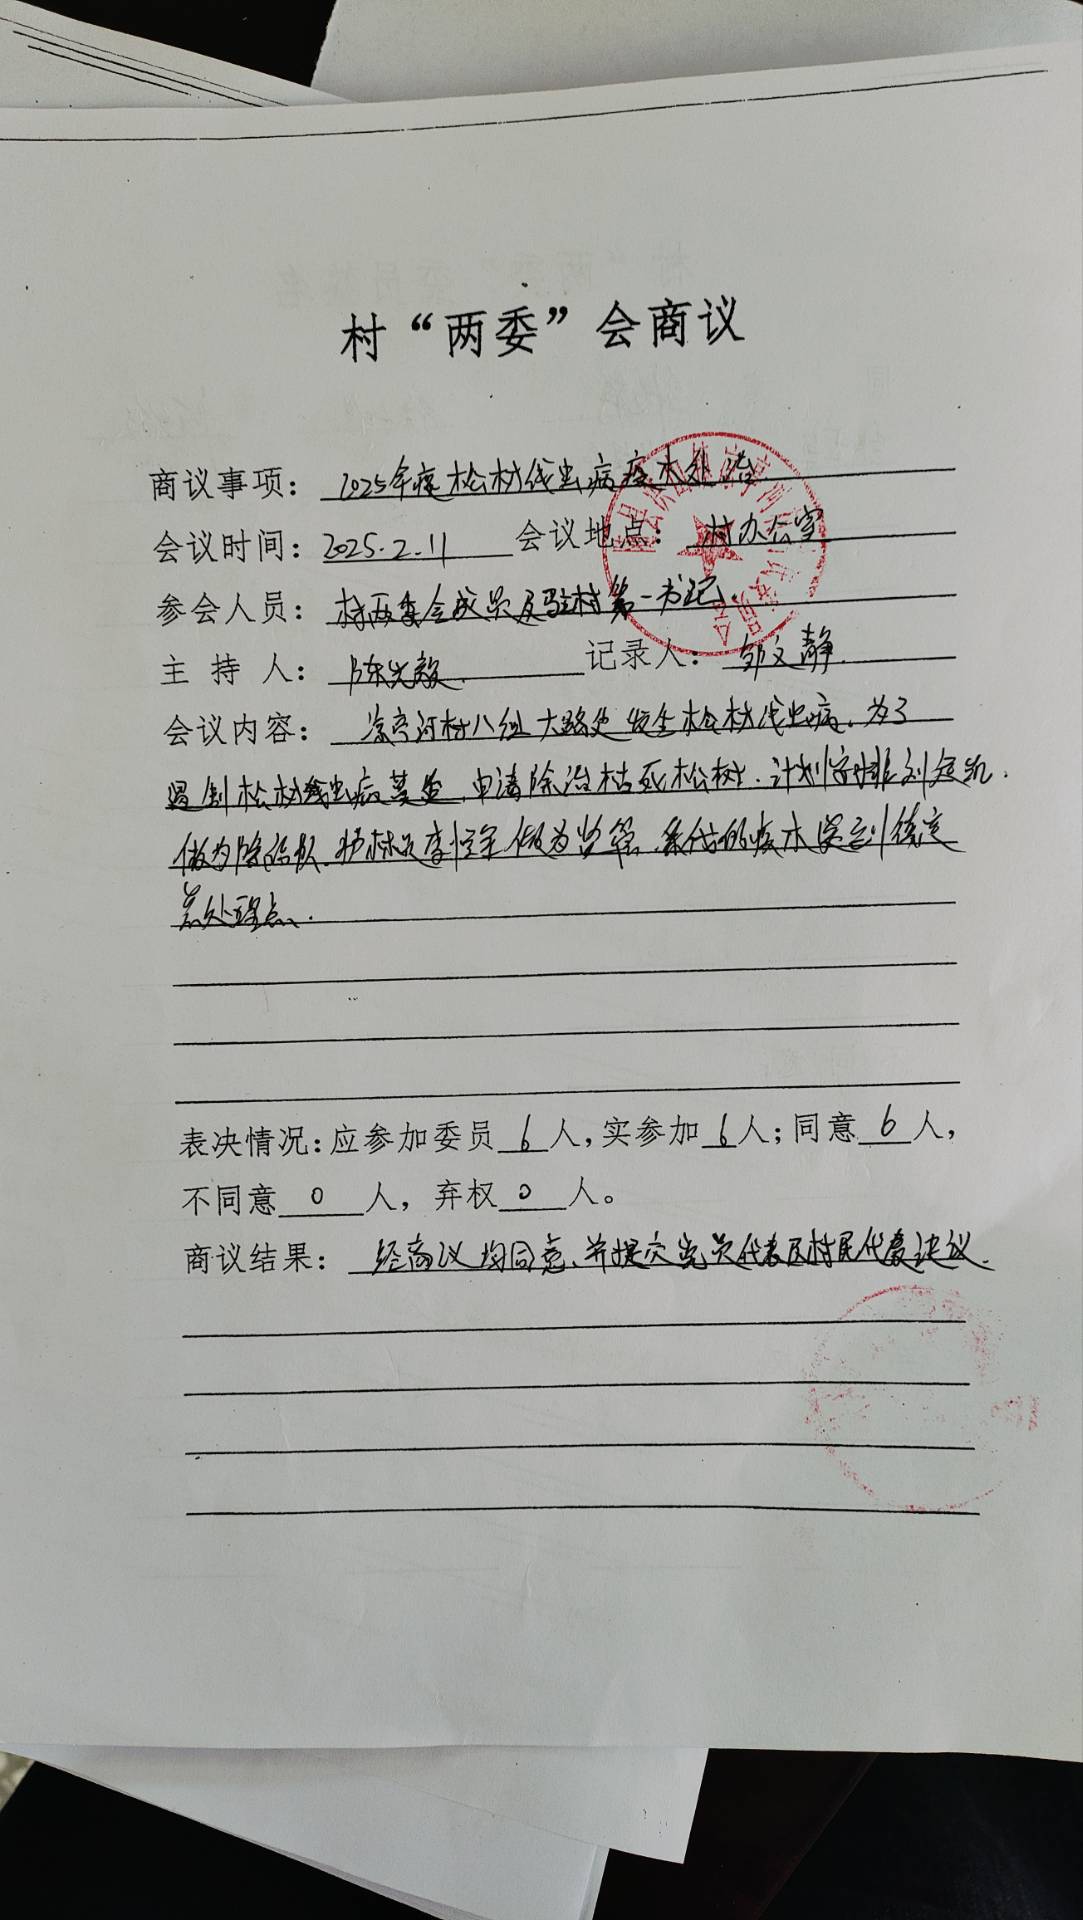 村“两委”会商议
商议事项：2025年度松材线虫病疫木处治
会议时间：2025.2.11 会议地点：村办公室
参会人员：村两委会成员及驻村第一书记.
主 持 人：陈光毅. 记录人：邹文静.
会议内容：凉亭河村八组大路处发生松材线虫病、为了
遏制松材线虫病蔓延、申请除治枯死松树.计划安排刘定凯.
做为除治队.护林员李恒 做为监管.采伐的疫木 到
处理点.
表决情况：应参加委员 6 人，实参加 6 人；同意 6 人，
不同意 0 人，弃权 0 人。
商议结果：经商议均同意、并提交党员代表及村民代表决议.